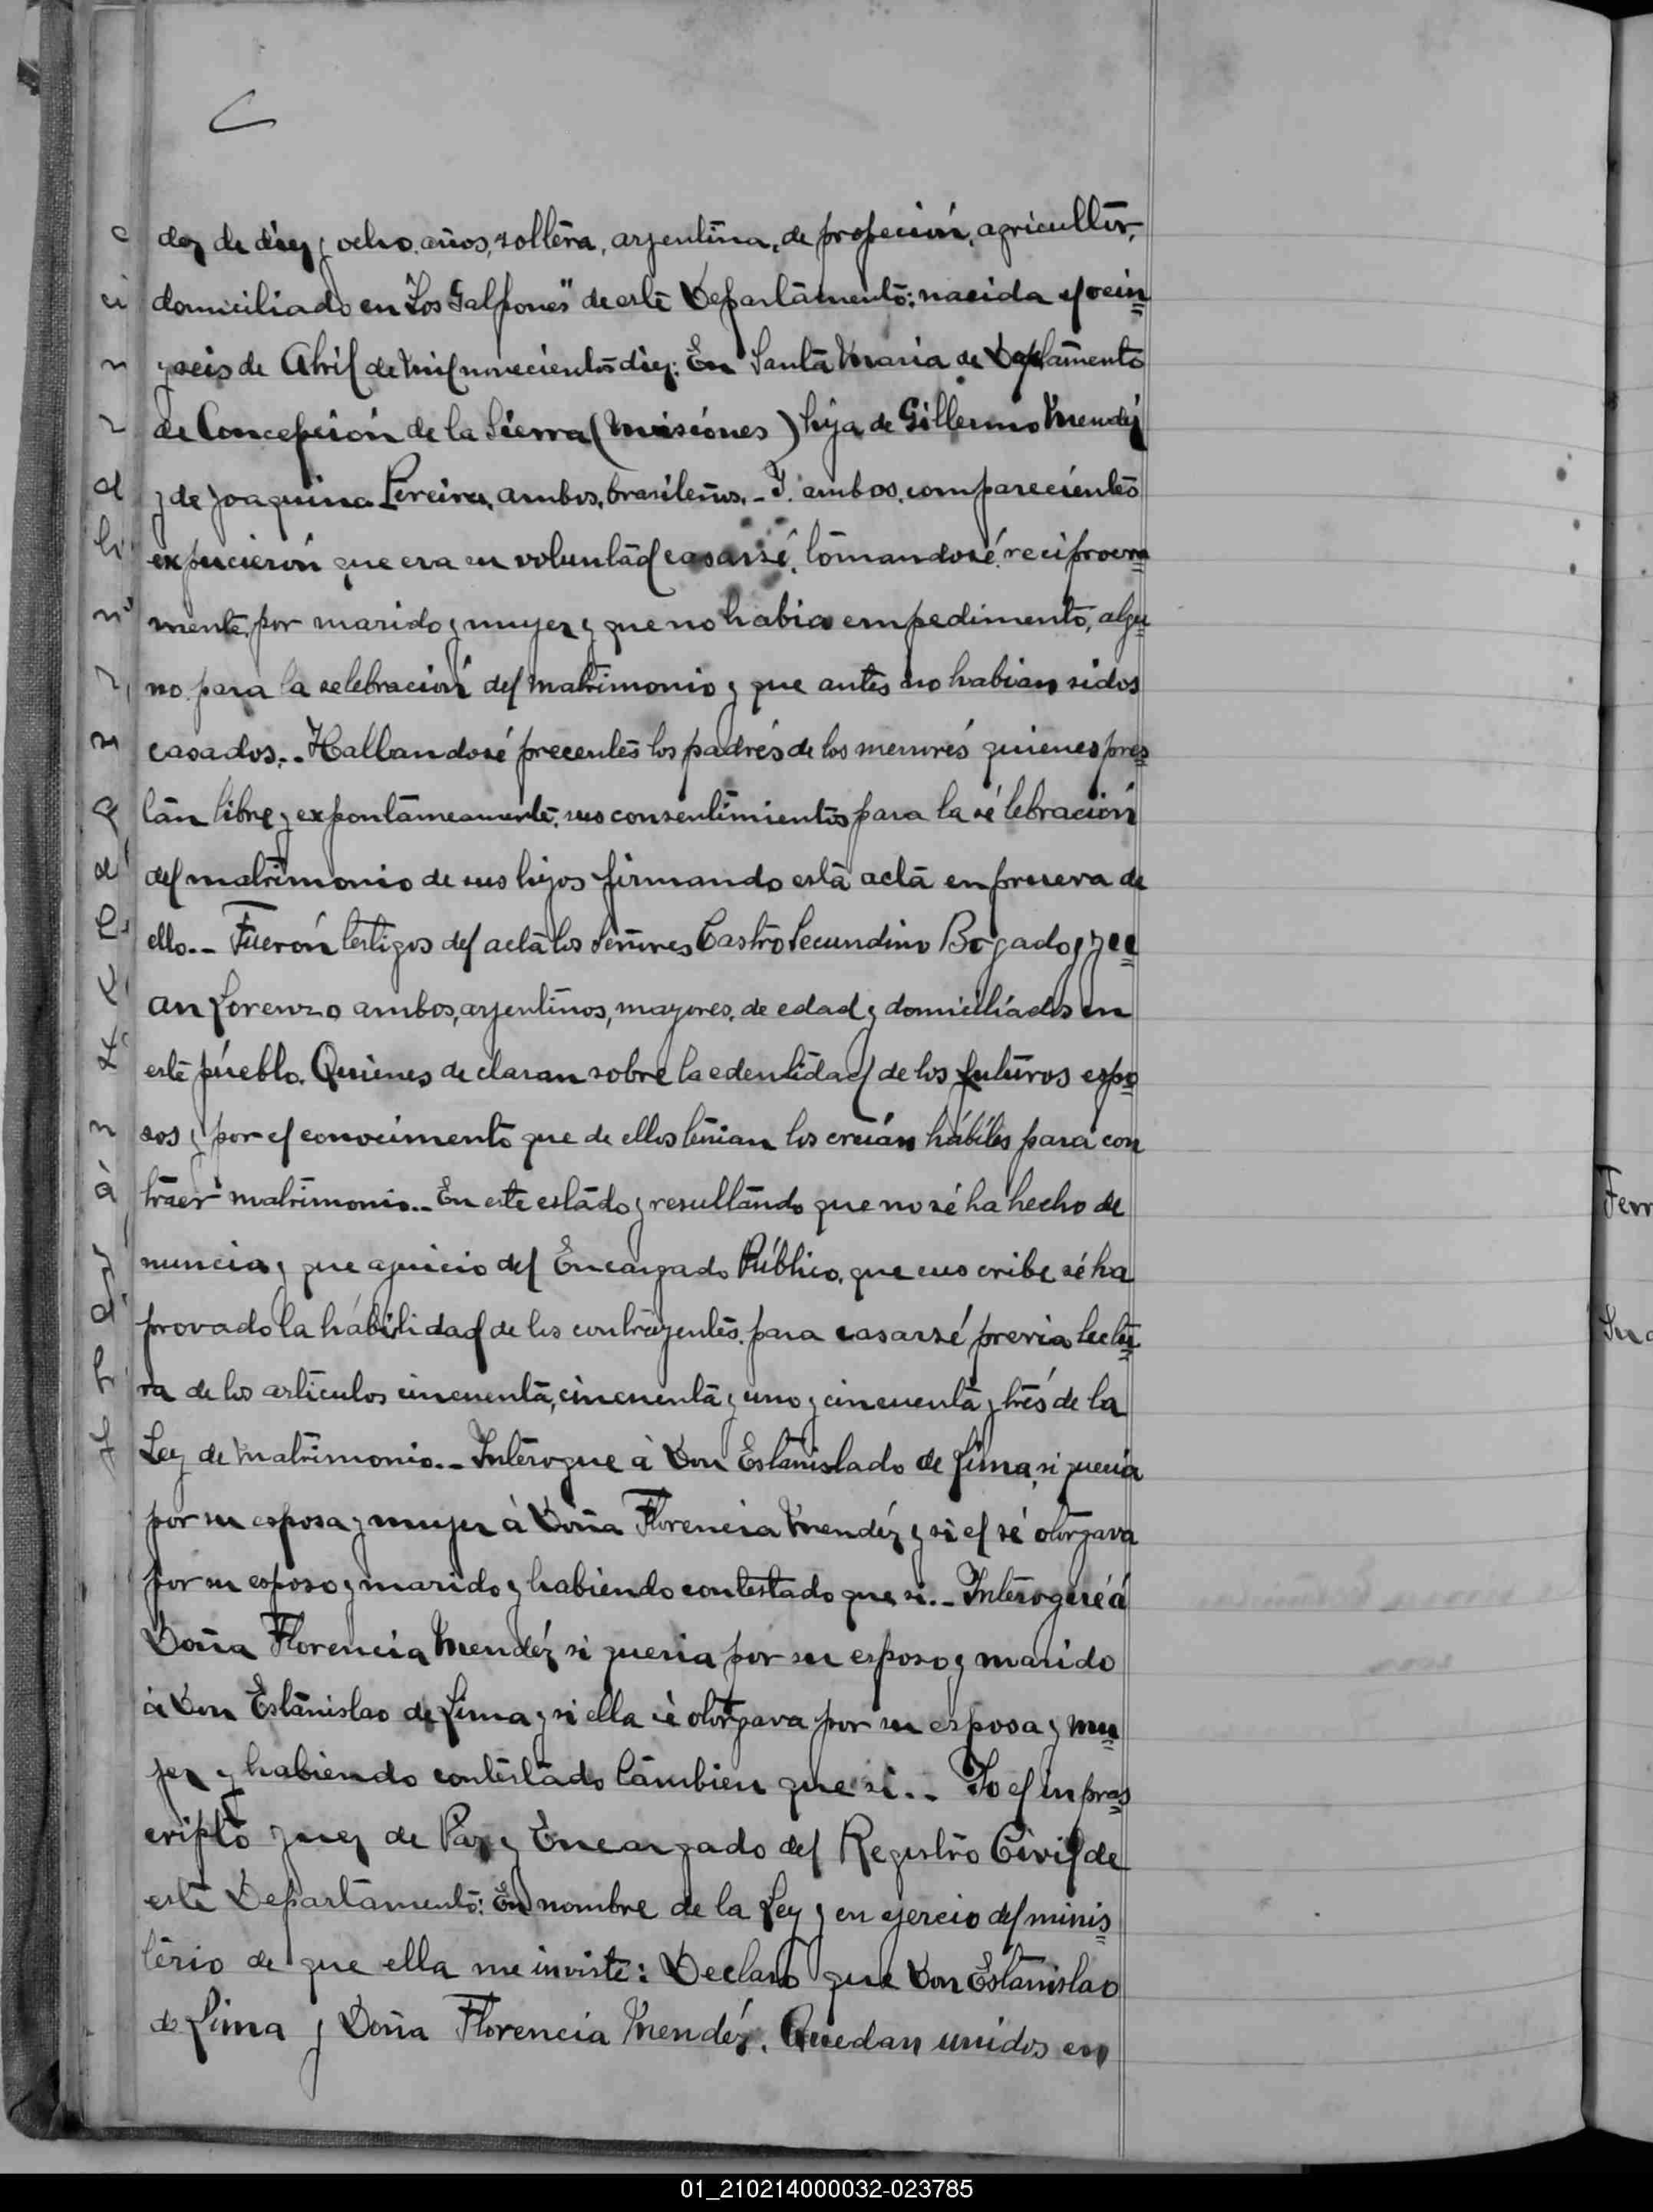 dez de diez y ocho años, soltera, argentina, de profeción, agricultor,
domiciliado en "Los Galpones" de este Departamento: nacida el vein
y seis de Abril de Mil novecientos diez: En Santa Maria de Departamento
de Concepcion de la Sierra (Misiones) hija de Gillermo Mendez
y de Joaquina Pereira, ambos, brasileños.- I. ambos comparecientes
expucierón que era su voluntad casarsé, tomandosé reciproca
mente, por marido y muger y que no habia empedimento, algu
no para la selebración del matrimonio y que antes no habian sidos
casados.- Hallandosé precentes los padrés de los menorés quienes pres
tan libre y expontameamente, sus consentimientos para la sé lebración
del matrimonio de sus hijos firmando esta acta en prueva de
ello.- Fuerón testigos del acta los señores Castro Secundino Bogado y Ju
an Lorenzo ambos, argentinos, mayores, de edad y domiciliados en
este puéblo. Quienes de claran sobre la edentidad de los futuros espo
sos y por el conocimento que de ellos tenian los creián hábiles para con
traer matrimonio.- En este estado y resultando que no sé ha hecho de
nuncia, y que ajuicio del Encargado Público, que sus cribe sé ha
provado la hábilidad de los contrayentes, para casarsé previa lectu
ra de los articulos cincuenta, cincuenta y uno y cincuenta y trés de la
Ley de Matrimonio.- Interogue à Don Estanislado de Lima, si queria
por su esposa y muger à Doña Florencia Mendéz y si el sé otorgava
por su esposo y marido y habiendo contestado que si.- Interogué á
Doña Florencia Mendéz si queria por su esposo y marido
à Don Estanislao de Lima y si ella sè otorgava por su esposa y mu
jer y habiendo contestado tambien que si.- Yo el inpras
cripto Juez de Paz y Encargado del Registro Civil de
este Departamento: En nombre de la Ley y en ejercio del minis
terio de que ella me inviste: Declaro que Don Estanislao
de Lima y Doña Florencia Mendéz. Quedan unidos en
01_210214000032-023785